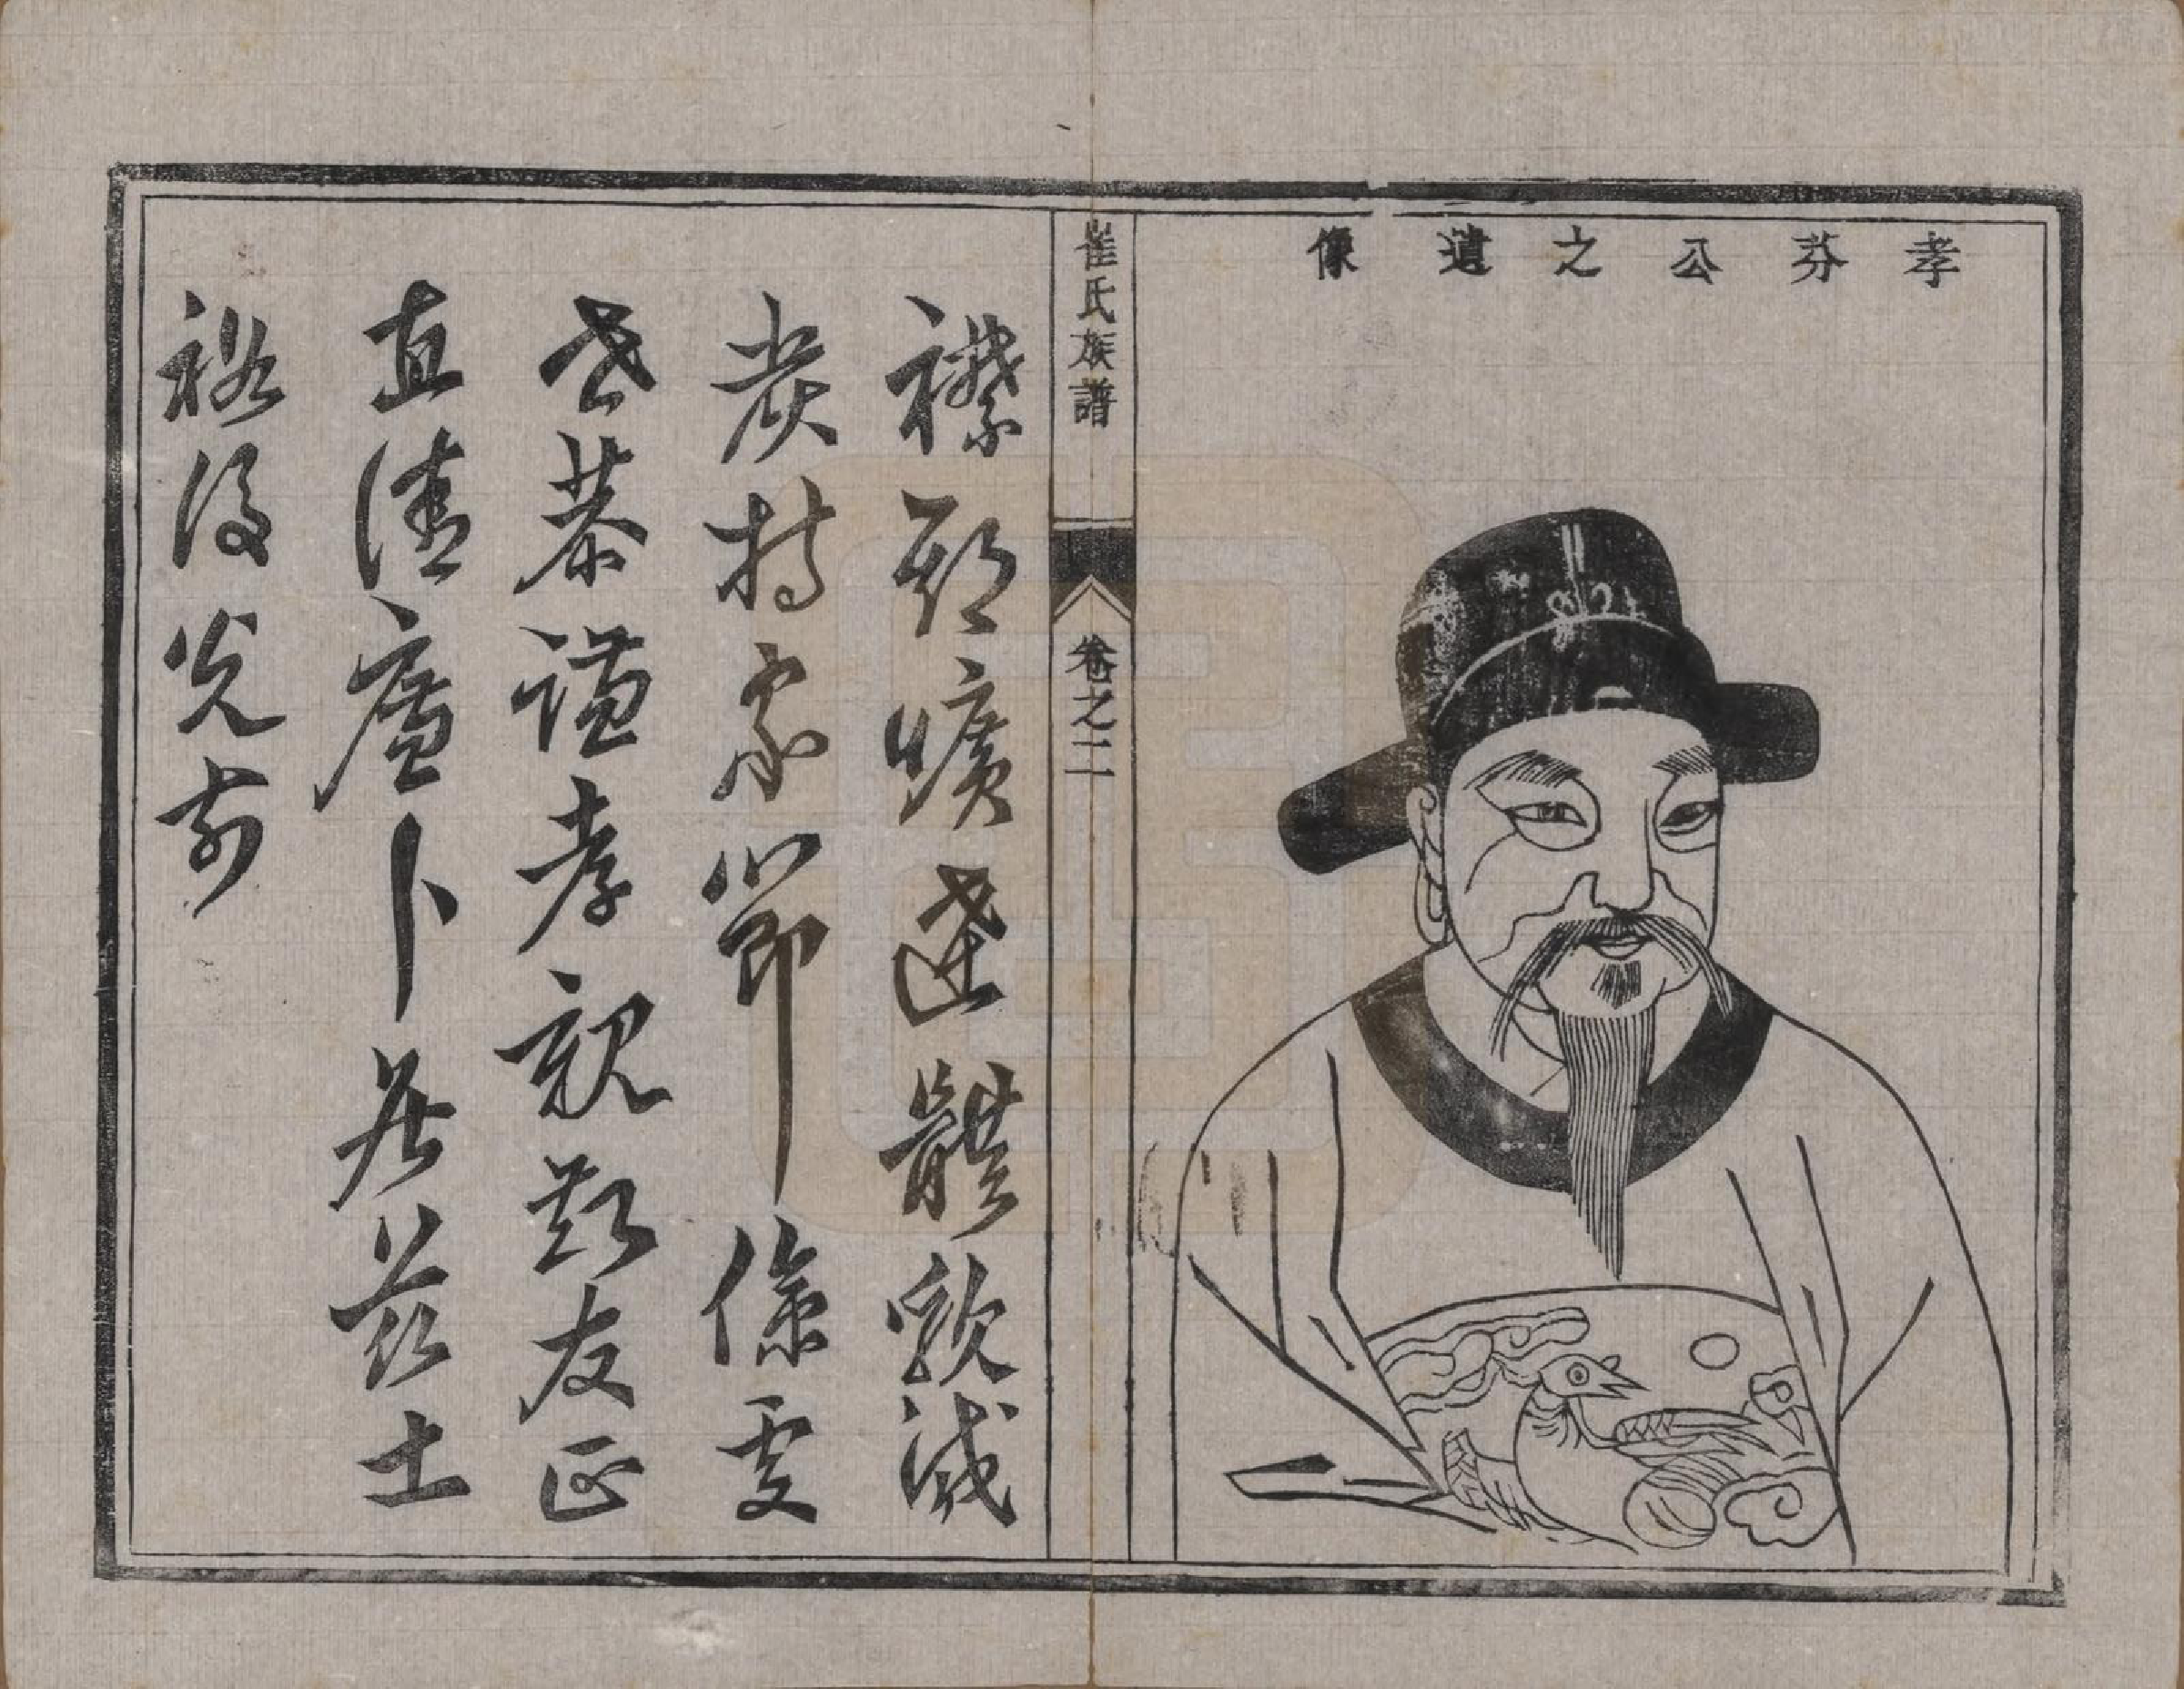 孝芬公之遺像
崔氏族譜
卷之二
襟期曠達體貌
持家節儉處
世恭謙孝親敬友正
直清廉卜居茲土
裕後光前